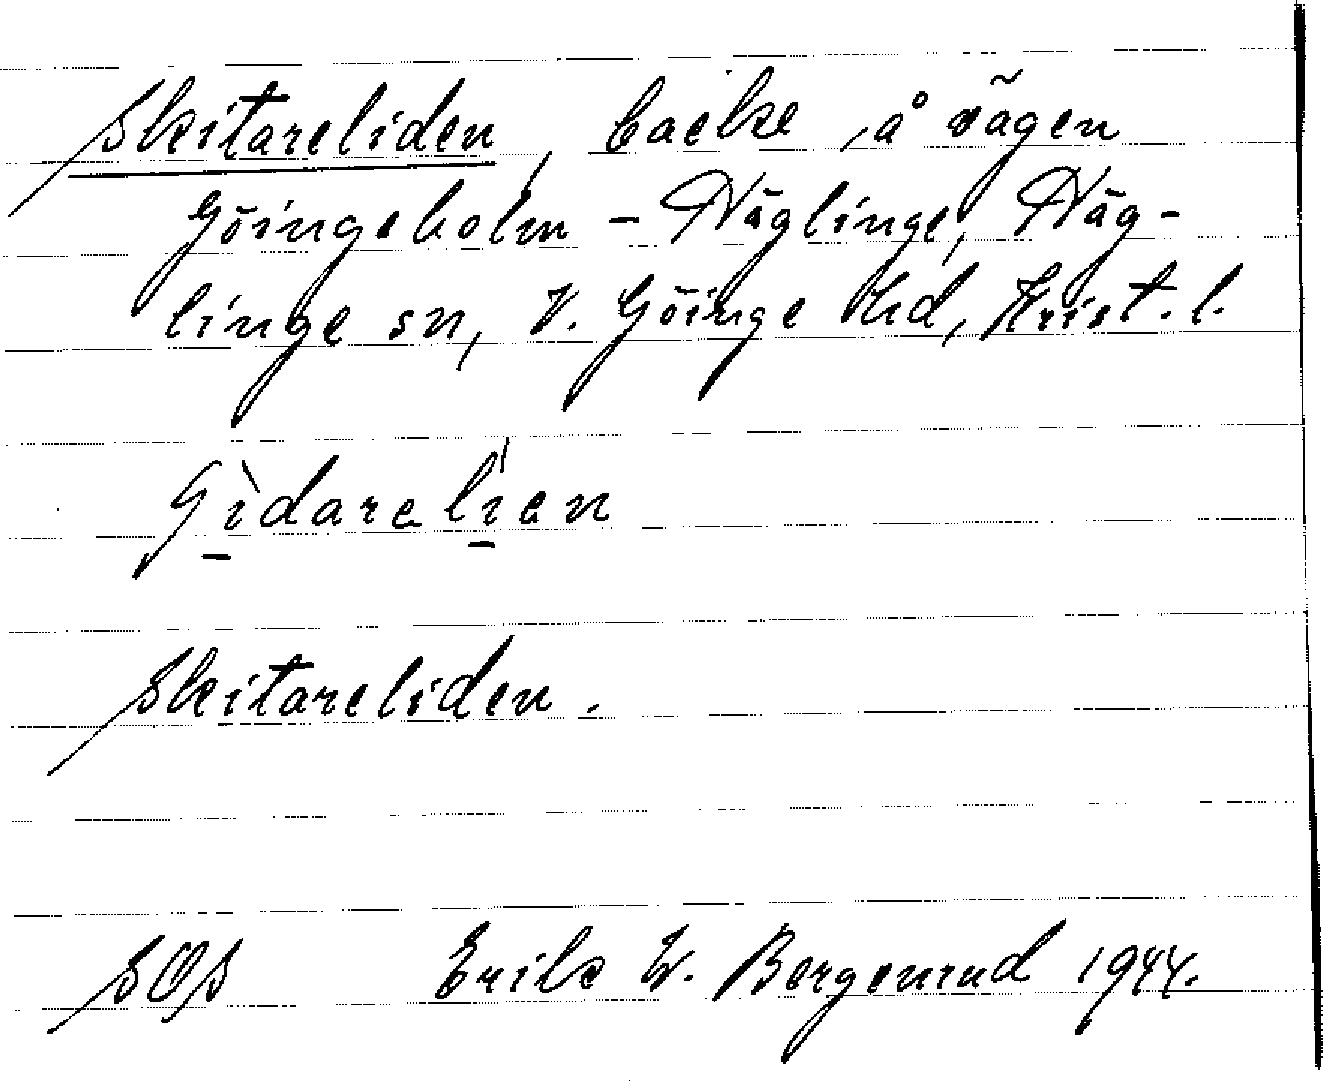 Skitareliden, backe å vägen
Göingeholm - Näglinge, Näg-
linge sn, V. Göinge hd, Krist. l.
Gìdarelíen
Skitareliden.
SOS Erik W. Bergenrud 1944.